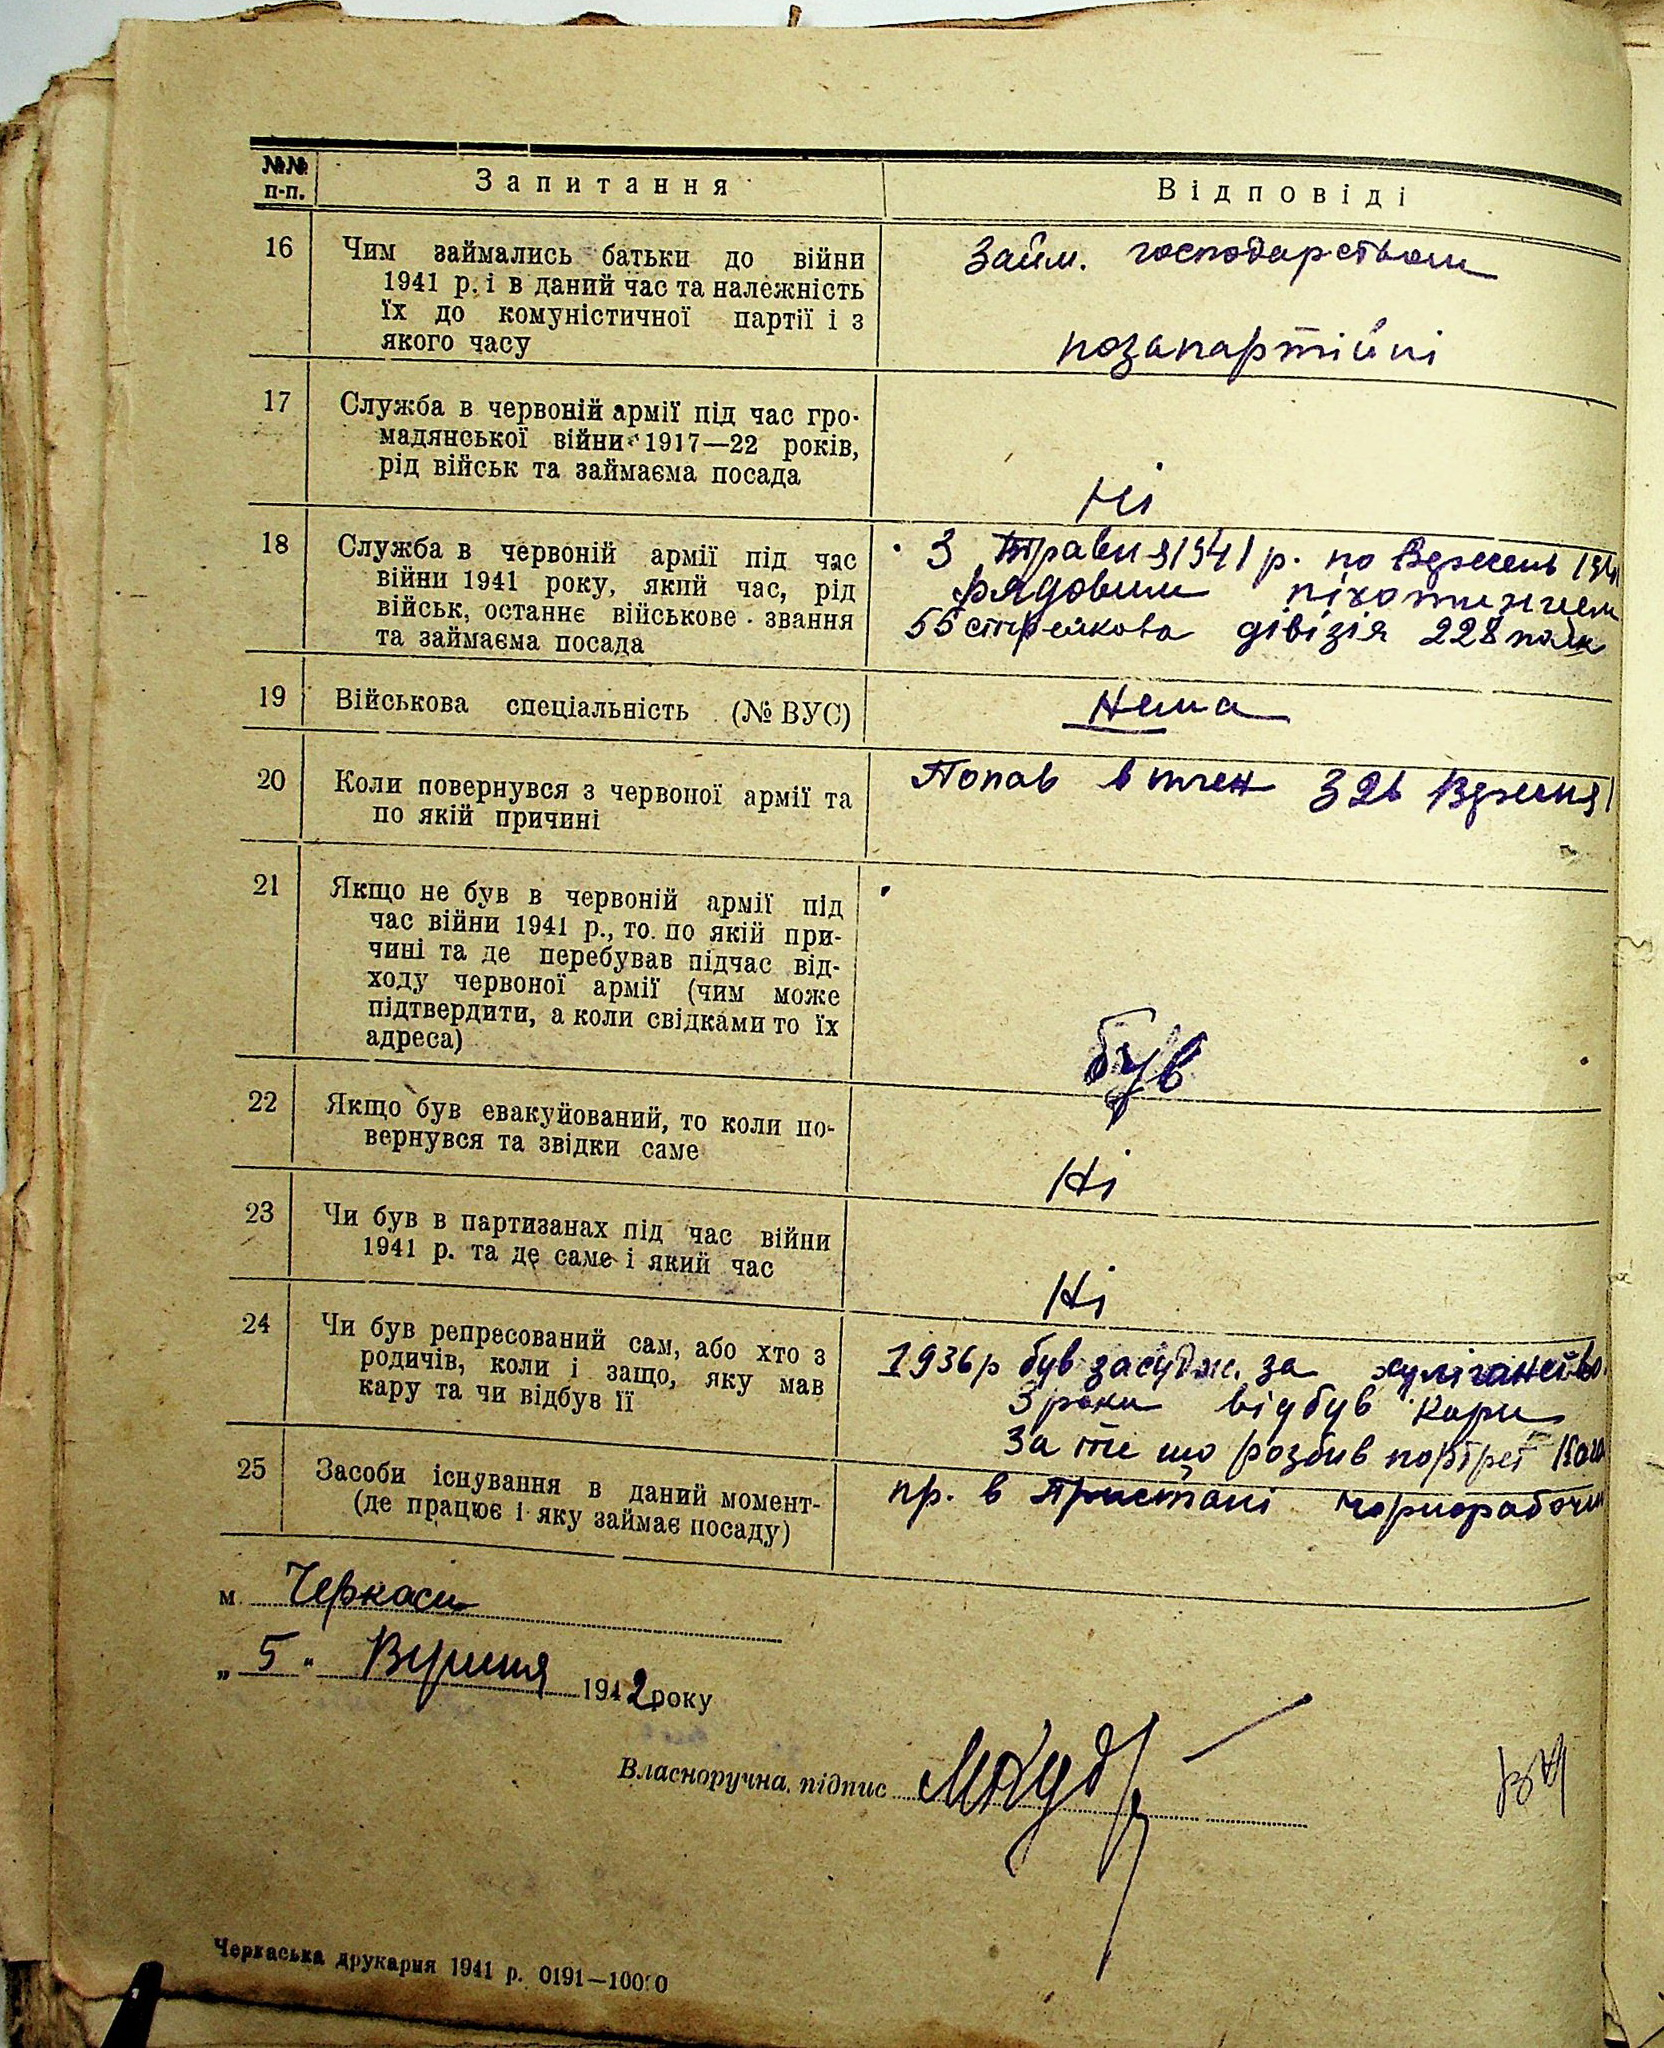 №№ п-п.
Запитання
Відповіді
16
Чим займались батьки до війни
1941 р. і в даний час та належність
їх до комуністичної партії і з
якого часу
Займ. господарством
позапартійні
17
Служба в червоній армії під час гро-
мадянської війни 1917—22 років,
рід військ та займаєма посада
Ні
18
Служба в червоній армії під час
війни 1941 року, який час, рід
військ, останнє військове звання
та займаєма посада
З Травня 1941 р. по Вересень 194
рядовим піхотинцем
55 стрелкова дівізія 228 полк
19
Військова спеціальність (№ ВУС)
Нема
20
Коли повернувся з червоної армії та
по якій причині
Попав в плен З 26 Вересня
21
Якщо не був в червоній армії під
час війни 1941 р., то по якій при-
чині та де перебував підчас від-
ходу червоної армії (чим може
підтвердити, а коли свідками то їх
адреса)
був
22
Якщо був евакуйований, то коли по-
вернувся та звідки саме
Ні
23
Чи був в партизанах під час війни
1941 р. та де саме і який час
Ні
24
Чи був репресований сам, або хто з
родичів, коли і защо, яку мав
кару та чи відбув її
1936 р був засудж. за хуліганство.
3 роки відбув кари
За те що розбив портрет
25
Засоби існування в даний момент-
(де працює і яку займає посаду)
пр. в Пристані чорнорабочим
м. Черкаси
„ 5 " Вересня 1942 року
Власноручна підпис
Черкаська друкарня 1941 р. 0191—10000